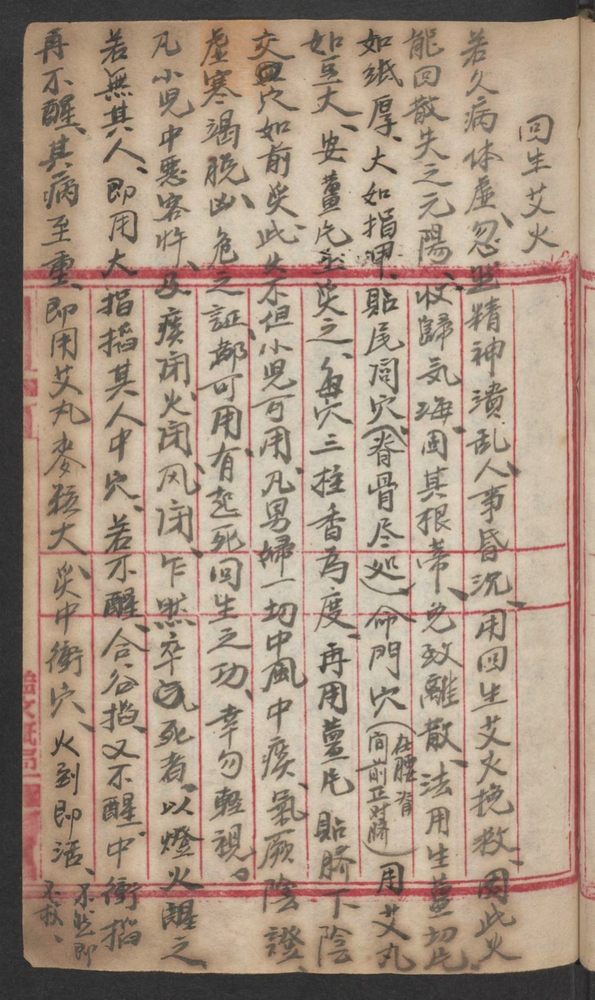 回生艾火
若久病体虛、忽然精神潰乱、人事昏沉、用回生艾火挽救、因此火
能回散失之元陽、收歸气海、固其根蒂、免致離散、法用生薑切片
如紙厚、大如指甲、貼尾閭穴（脊骨尽処）命門穴（在腰脊間前正对臍）用艾丸
如豆大、安薑片上灸之、每穴三炷香為度、再用薑片貼臍下陰
交穴如前灸、此火不但小児可用、凡男婦一切中風中痰、氣厥陰證、
虛寒竭脫、凶危之証、都可用、有起死回生之功、幸勿輕視。
凡小児中悪客忤、及痰闭火闭风闭、乍然卒死者、以燈火醒之、
若無其人、即用大指掐其人中穴、若不醒、合谷掐、又不醒、中衝掐
再不醒、其病至重、即用艾丸麥粒大、灸中衝穴、火到即活、不然即不救、